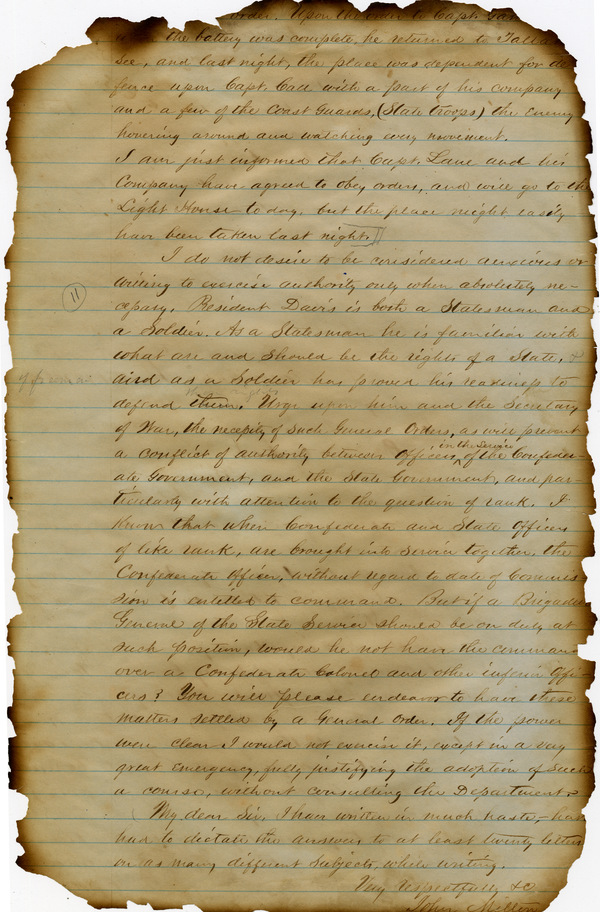 order. Upon the order to Capt.
the battery was complete, he returned to Talla
see, and last night, the place was dependent for de
fence upon Capt. Call with a part of his company
and a few of the Coast Guards, (State troops) the enemy
hovering around and watching every movement.
I am just informed that Capt. Lane and his
Company have agreed to obey orders, and will go to the
Light House to day, but the place might easily
have been taken last night.]]
I do not desire to be considered anxious or
willing to exercise authority only when absolutely ne-
cessary. President Davis is both a Statesman and
11
a Soldier. As a Statesman he is familiar with
what are and should be the rights of a State, &
and as a Soldier has proved his readiness to
defend them. Urge upon him and the Secretary
of War, the necessity of such General Orders, as will prevent
a conflict of authority between officers in the service of the Confeder-
ate Government, and the State Government, and par-
ticularly with attention to the question of rank. I
know that when Confederate and State officers
of like rank, are brought into service together, the
Confederate officer, without regard to date of Commis
sion is entitled to command. But if a Brigadier
General of the State Service should be on duty at
such position, would he not have the command
over a Confederate Colonel and other inferior offi-
cers? You will please endeavor to have these
matters settled by a General Order. If the power
were clear I would not exercise it, except in a very
great emergency, fully justifying the adoption of such
a course, without consulting the Department.
My dear Sir, I have written in much haste,- have
had to dictate the answers to at least twenty letters
on as many different subjects, while writing.
Very respectfully &c
John Milton